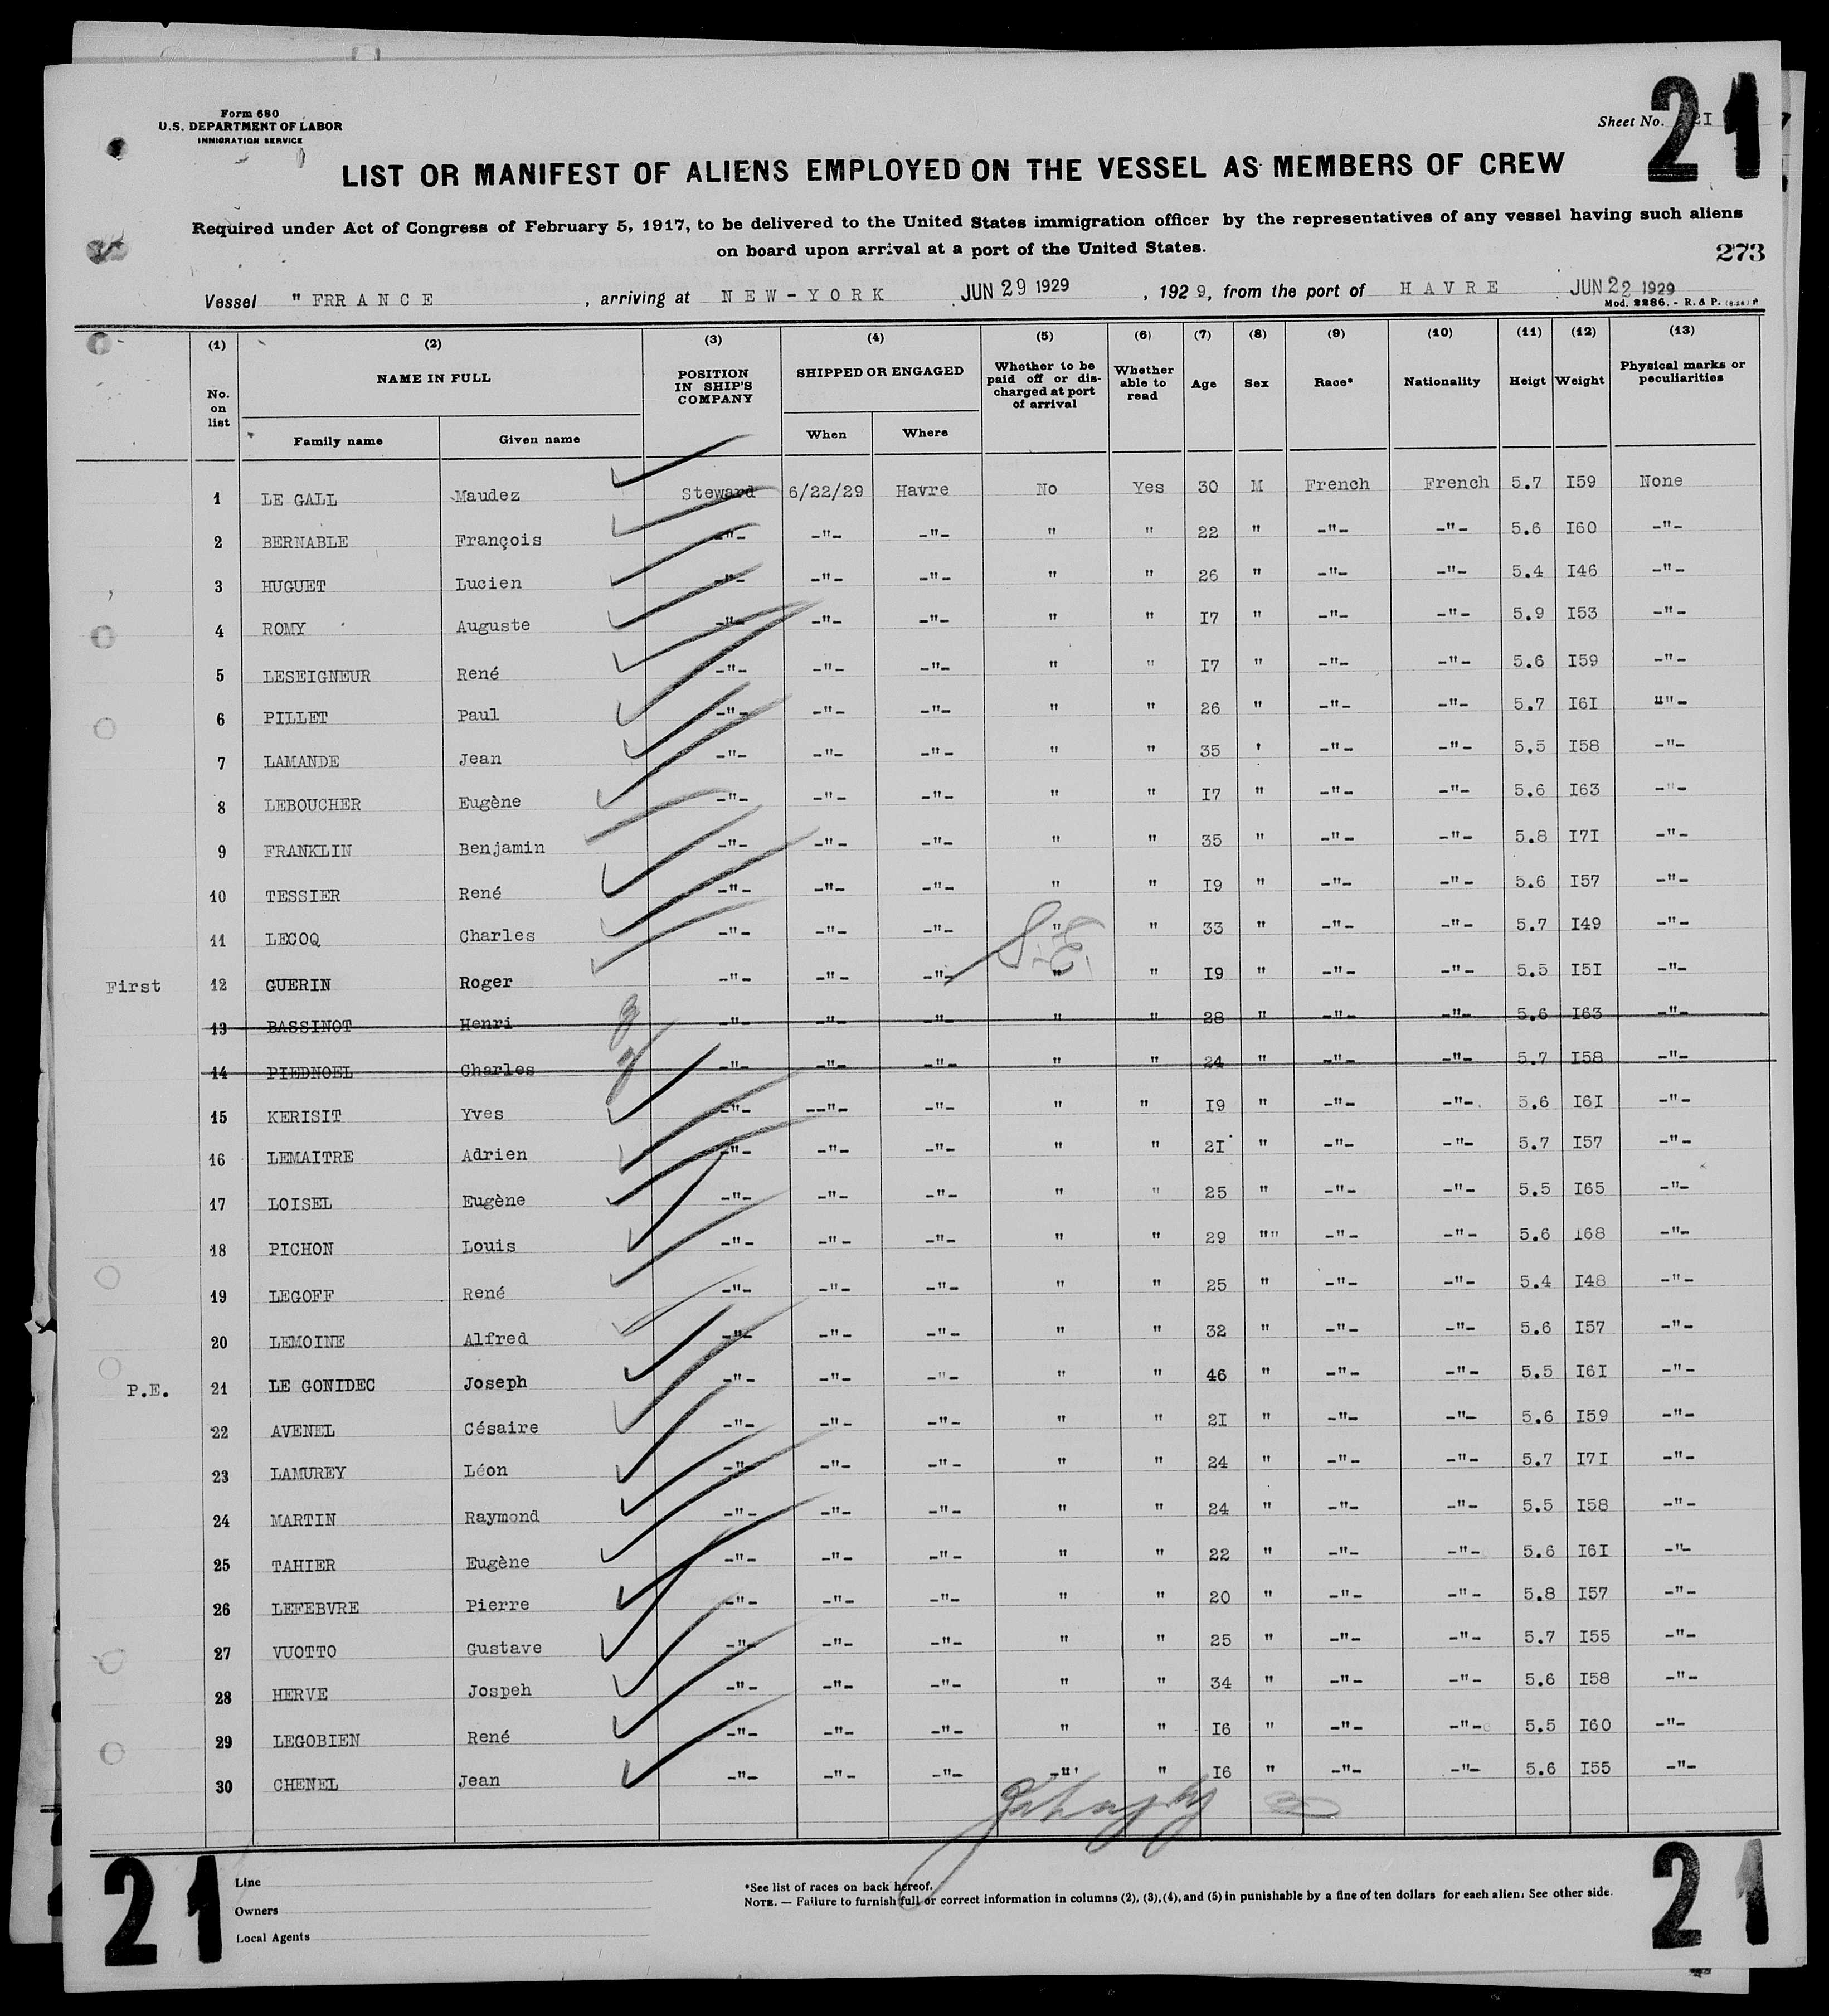 Form 680
U.S. DEPARTMENT OF LABOR
IMMIGRATION SERVICE
Sheet No. 21
21
LIST OR MANIFEST OF ALIENS EMPLOYED ON THE VESSEL AS MEMBERS OF CREW
Required under Act of Congress of February 5, 1917, to be delivered to the United States immigration officer by the representatives of any vessel having such aliens
on board upon arrival at a port of the United States.
273
Vessel " FRR A N C E , arriving at N E W - Y O R K JUN 29 1929 , 192 9, from the port of H A V R E JUN 22 1929
Mod. 2286. - R. & P.
(1) (2) (3) (4) (5) (6) (7) (8) (9) (10) (11) (12) (13)
No. on list NAME IN FULL POSITION IN SHIP'S COMPANY SHIPPED OR ENGAGED Whether to be paid off or dis-charged at port of arrival Whether able to read Age Sex Race* Nationality Heigt Weight Physical marks or peculiarities
Family name Given name When Where
1 LE GALL Maudez Steward 6/22/29 Havre No Yes 30 M French French 5.7 I59 None
2 BERNABLE François -"- -"- -"- " " 22 " -"- -"- 5.6 I60 -"-
3 HUGUET Lucien -"- -"- -"- " " 26 " -"- -"- 5.4 I46 -"-
4 ROMY Auguste -"- -"- -"- " " I7 " -"- -"- 5.9 I53 -"-
5 LESEIGNEUR René -"- -"- -"- " " I7 " -"- -"- 5.6 I59 -"-
6 PILLET Paul -"- -"- -"- " " 26 " -"- -"- 5.7 I6I ""-
7 LAMANDE Jean -"- -"- -"- " " 35 ' -"- -"- 5.5 I58 -"-
8 LEBOUCHER Eugène -"- -"- -"- " " I7 " -"- -"- 5.6 I63 -"-
9 FRANKLIN Benjamin -"- -"- -"- " " 35 " -"- -"- 5.8 I7I -"-
10 TESSIER René -"- -"- -"- " " I9 " -"- -"- 5.6 I57 -"-
11 LECOQ Charles -"- -"- -"- " " 33 " -"- -"- 5.7 I49 -"-
First 12 GUERIN Roger -"- -"- -"- " " I9 " -"- -"- 5.5 I5I -"-
13 BASSINOT Henri -"- -"- -"- " " 28 " -"- -"- 5.6 I63 -"-
14 PIEDNOEL Charles -"- -"- -"- " " 24 " -"- -"- 5.7 I58 -"-
15 KERISIT Yves -"- --"- -"- " " I9 " -"- -"-. 5.6 I6I -"-
16 LEMAITRE Adrien -"- -"- -"- " " 2I " -"- -"- 5.7 I57 -"-
17 LOISEL Eugène -"- -"- -"- " " 25 " -"- -"- 5.5 I65 -"-
18 PICHON Louis -"- -"- -"- " " 29 "" -"- -"- 5.6 I68 -"-
19 LEGOFF René -"- -"- -"- " " 25 " -"- -"- 5.4 I48 -"-
20 LEMOINE Alfred -"- -"- -"- " " 32 " -"- -"- 5.6 I57 -"-
P.E. 21 LE GONIDEC Joseph -"- -"- -"- " " 46 " -"- -"- 5.5 I6I -"-
22 AVENEL Césaire -"- -"- -"- " " 2I " -"- -"- 5.6 I59 -"-
23 LAMUREY Léon -"- -"- -"- " " 24 " -"- -"- 5.7 I7I -"-
24 MARTIN Raymond -"- -"- -"- " " 24 " -"- -"- 5.5 I58 -"-
25 TAHIER Eugène -"- -"- -"- " " 22 " -"- -"- 5.6 I6I -"-
26 LEFEBVRE Pierre -"- -"- -"- " " 20 " -"- -"- 5.8 I57 -"-
27 VUOTTO Gustave -"- -"- -"- " " 25 " -"- -"- 5.7 I55 -"-
28 HERVE Jospeh -"- -"- -"- " " 34 " -"- -"- 5.6 I58 -"-
29 LEGOBIEN René -"- -"- -"- " " I6 " -"- -"- 5.5 I60 -"-
30 CHENEL Jean -"- -"- -"- -"' " I6 " -"- -"- 5.6 I55 -"-
21 21
Line
Owners
Local Agents
*See list of races on back hereof.
NOTE. — Failure to furnish full or correct information in columns (2), (3), (4), and (5) in punishable by a fine of ten dollars for each alien. See other side.